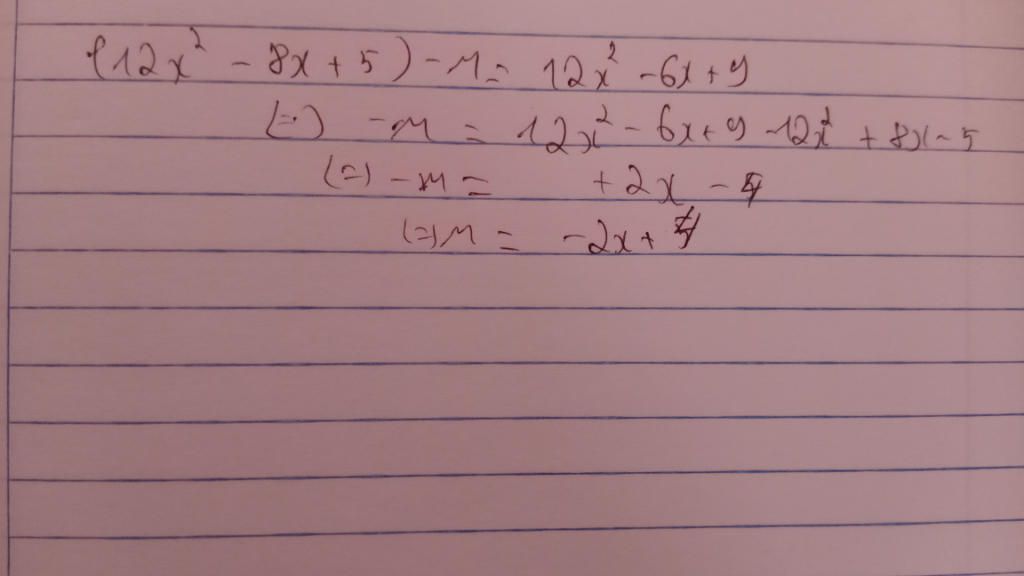 (12x² - 8x + 5) - M = 12x² - 6x + 9
(=) - M = 12x² - 6x + 9 - 12x² + 8x - 5
(=) - M = + 2x - 4
(=) M = - 2x + 4